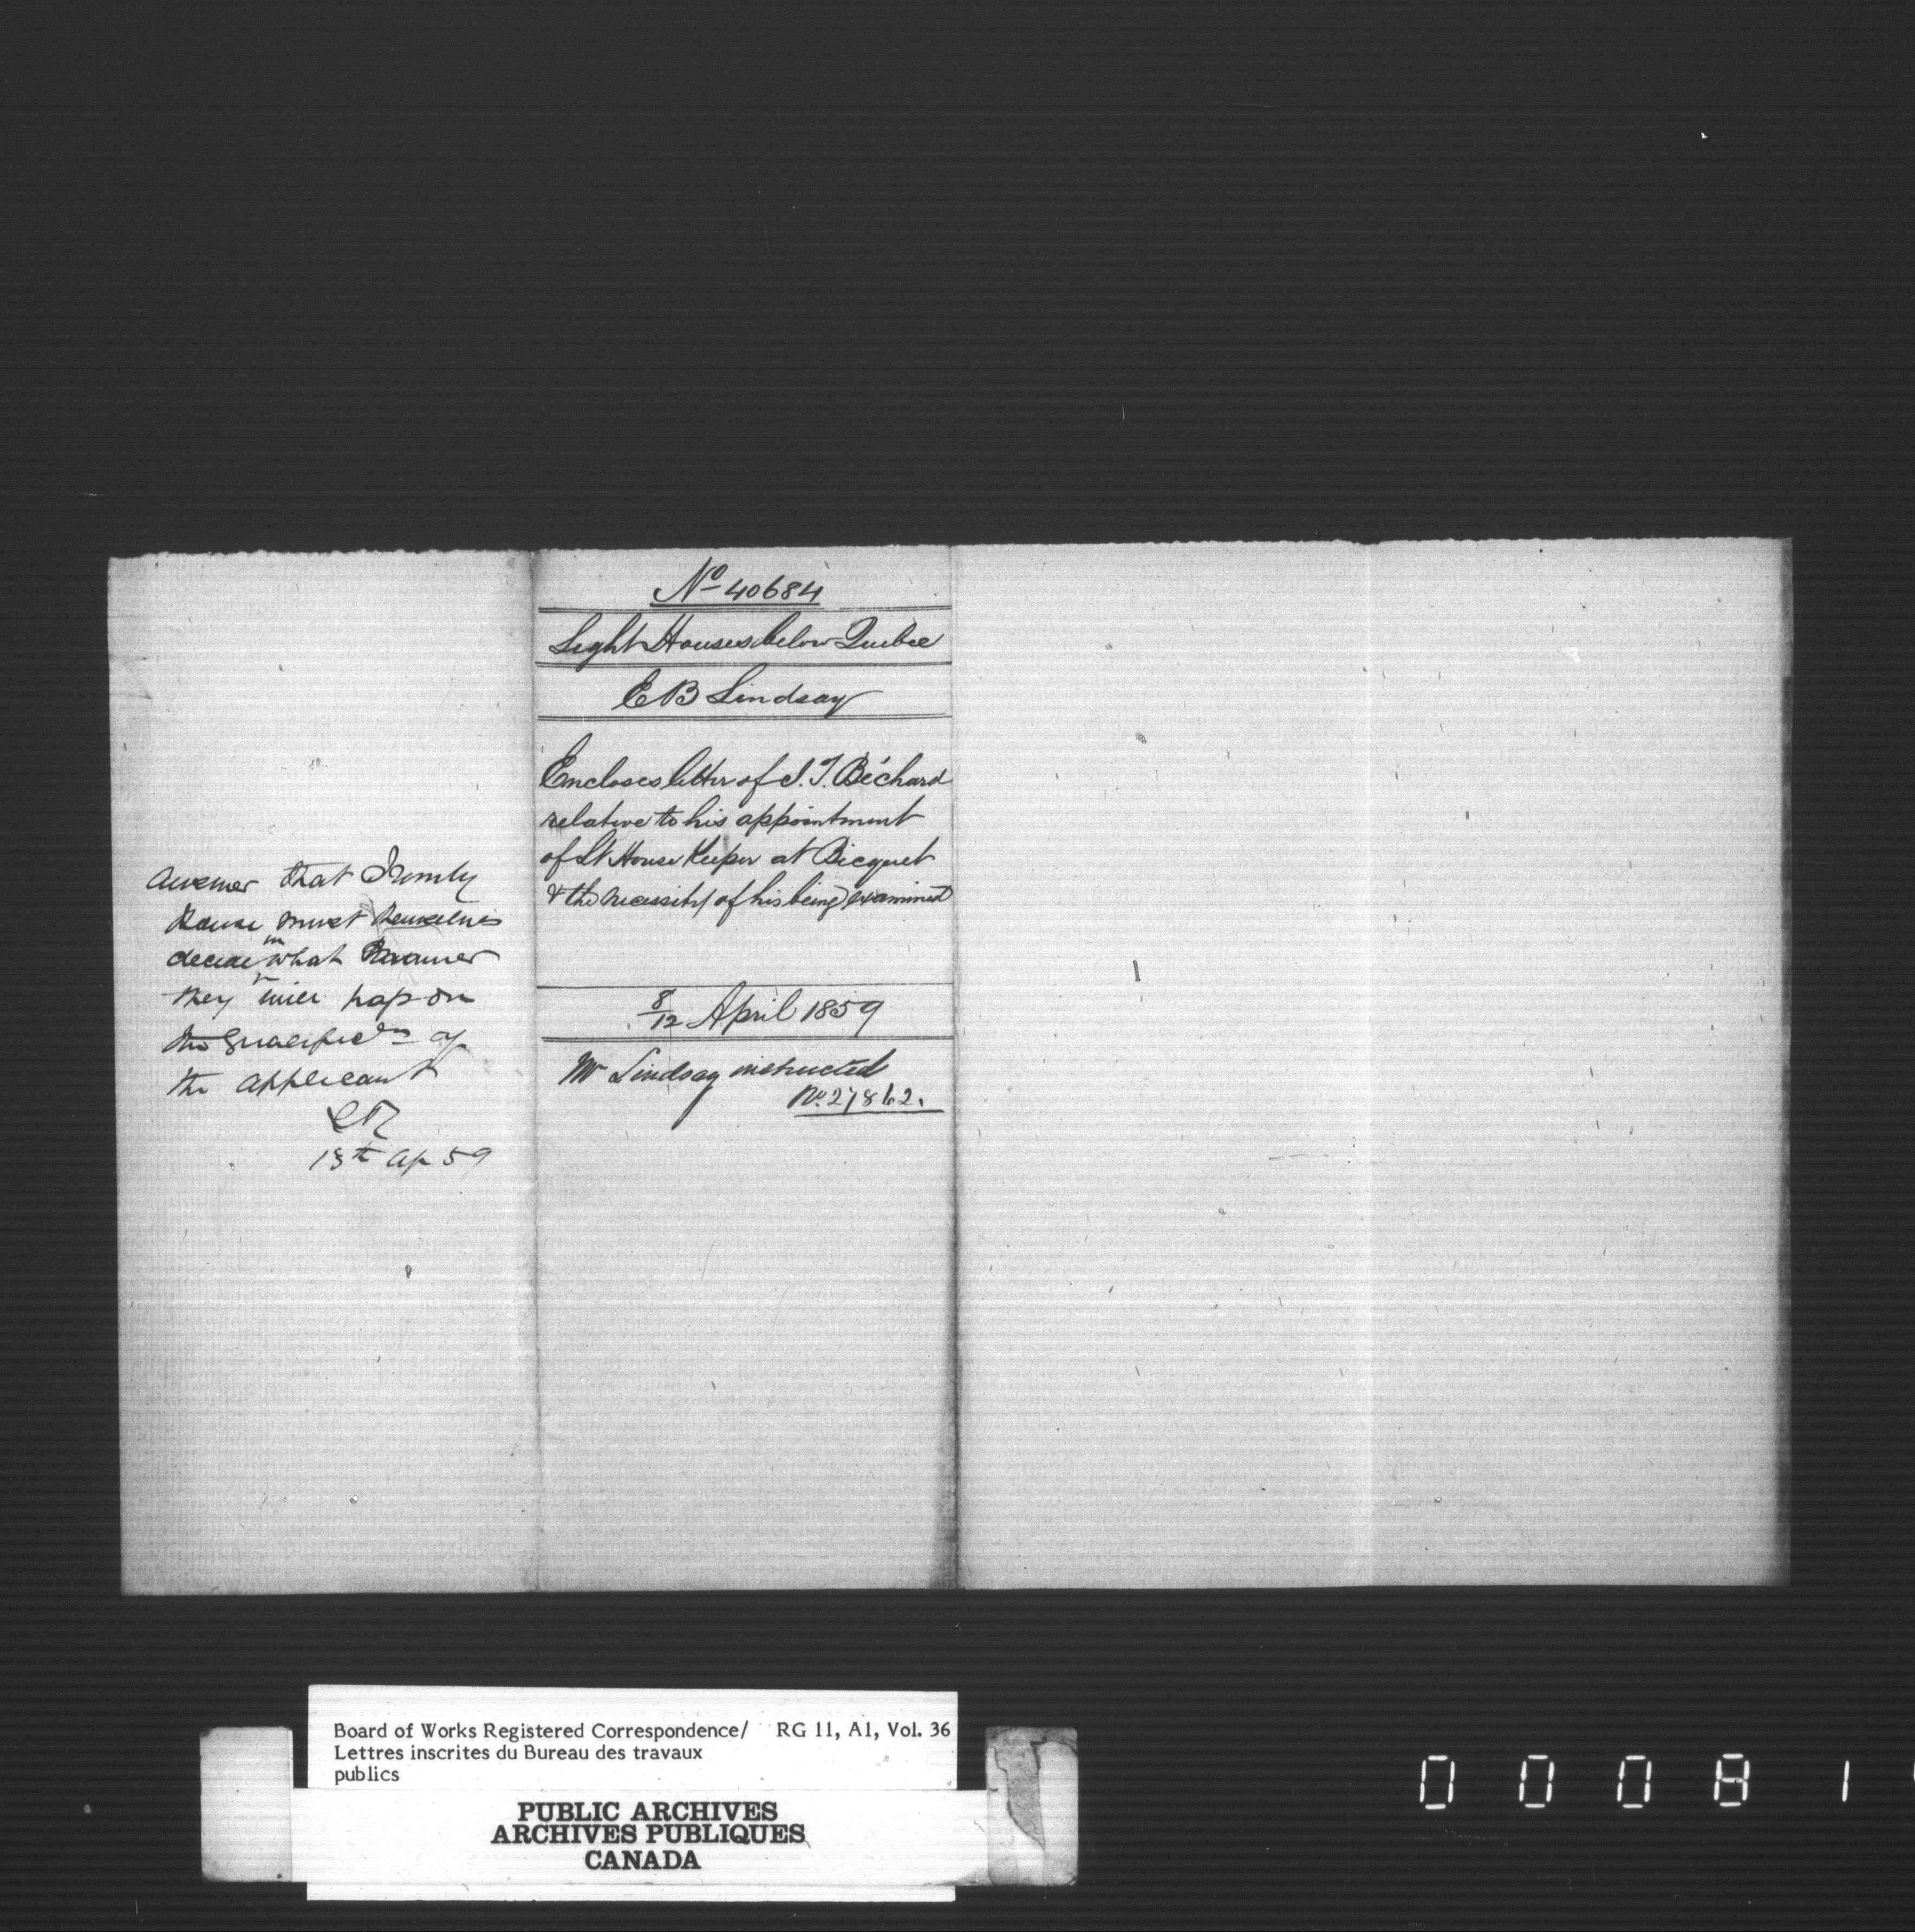 Answer that Trinity
House must themselves
decide in what manner
they will pass on
the qualificns of
the applicant
13th Ap 59
No 40684
Light Houses below Quebec
E B Lindsay
Encloses letter of J. T. Béchard
relative to his appointment
of Lt House Keeper at Bicquet
& the necessity of his being examined
8/12 April 1859
Mr Lindsay instructed
No. 27862.
Board of Works Registered Correspondence/ RG 11, A1, Vol. 36
Lettres inscrites du Bureau des travaux
publics
PUBLIC ARCHIVES
ARCHIVES PUBLIQUES
CANADA
0 0 0 8 1